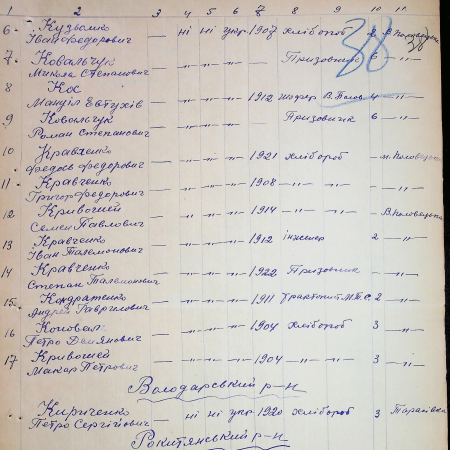 1 2 3 4 5 6 7 8 9 10 11
6. Кузьменко
Іван Федорович — ні ні укр. 1907 хлібороб
38
7. Ковальчук
Микола Степанович — -"- -"- — Призовник 6 — -"-
8 Кох
Мануїл Евтухів — -"- -"- -"- 1912 шофер 4 -"-
9 Ковальчук
Роман Степанович — -"- -"- — Призовник 6 -"-
10 Кравченко
Федось Федорович — -"- -"- -"- 1921 хлібороб — м. Половецьке
11. Кравченко
Григор Федорович — -"- -"- -"- 1908 — -"- -"- — -"-
12 Кривошей
Семен Павлович — -"- -"- -"- 1914 — -"- -"- — В. Половецьке
13 Кравченко
Іван Палемонович — -"- -"- -"- 1912 інженер 2 -"-
14 Кравченко
Степан Палемонович — -"- -"- -"- 1922 Призовник — -"-
15. Кондратенко
Андрей Гаврилович — -"- -"- -"- 1911 2 -"-
16 Коновал
Петро Демянович — -"- -"- -"- 1904 хлібороб 3 -"-
17 Кривошей
Макар Петрович — -"- -"- -"- 1904 — -"- 3 -"-
Володарський р-н
Кириченко
Петро Сергійович — ні ні укр. 1920 хлібороб 3 Тарасівка
Рокитянський р-н